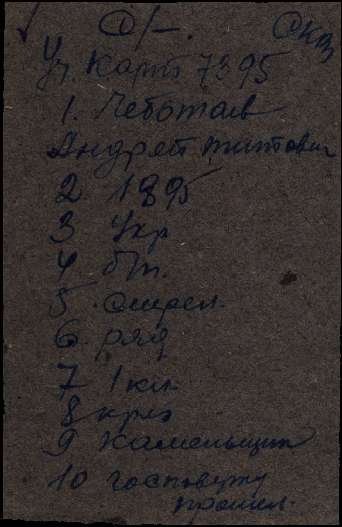 Уч. карт 7395
1. Чеботаев
Андрей Титович
2 1895
3 Укр
4 б/п.
5. стрел.
6. ряд
7 1 кл.
8 крез
9 Каменьщик
10